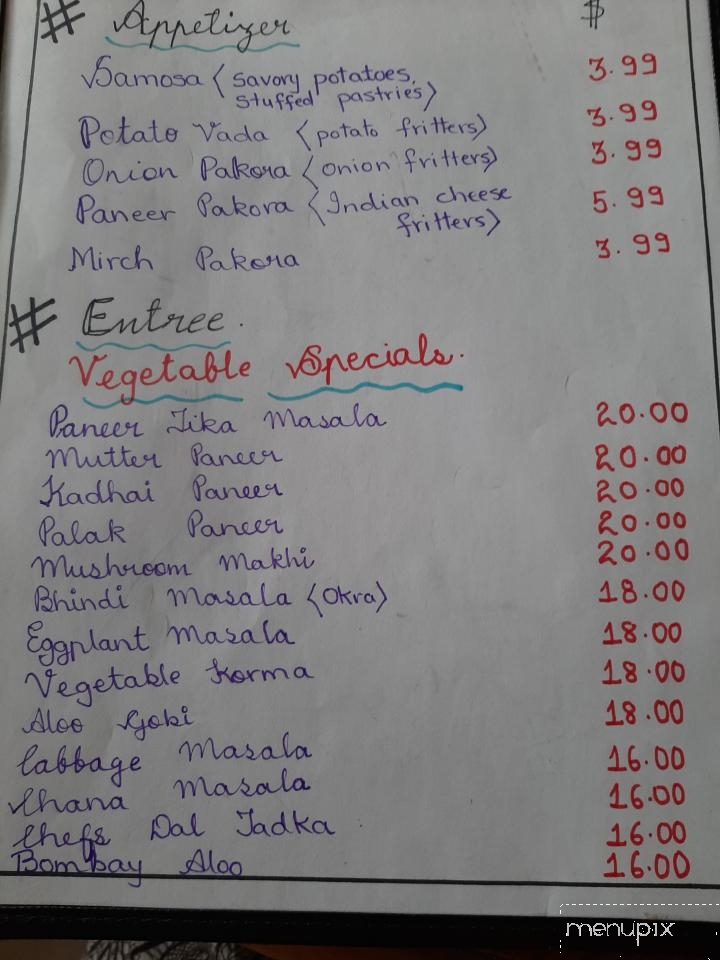 # Appetizer $
Samosa (savory potatoes, 3.99
stuffed pastries)
Potato Vada (potato fritters) 3.99
Onion Pakora (onion fritters) 3.99
Paneer Pakora (Indian cheese 5.99
fritters)
Mirch Pakora 3.99
# Entree.
Vegetable Specials.
Paneer Tika Masala 20.00
Mutter Paneer 20.00
Kadhai Paneer 20.00
Palak Paneer 20.00
Mushroom Makhi 20.00
Bhindi Masala (Okra) 18.00
Eggplant Masala 18.00
Vegetable Korma 18.00
Aloo Gobi 18.00
Cabbage Masala 16.00
Chana Masala 16.00
Chefs Dal Tadka 16.00
Bombay Aloo 16.00
menupix